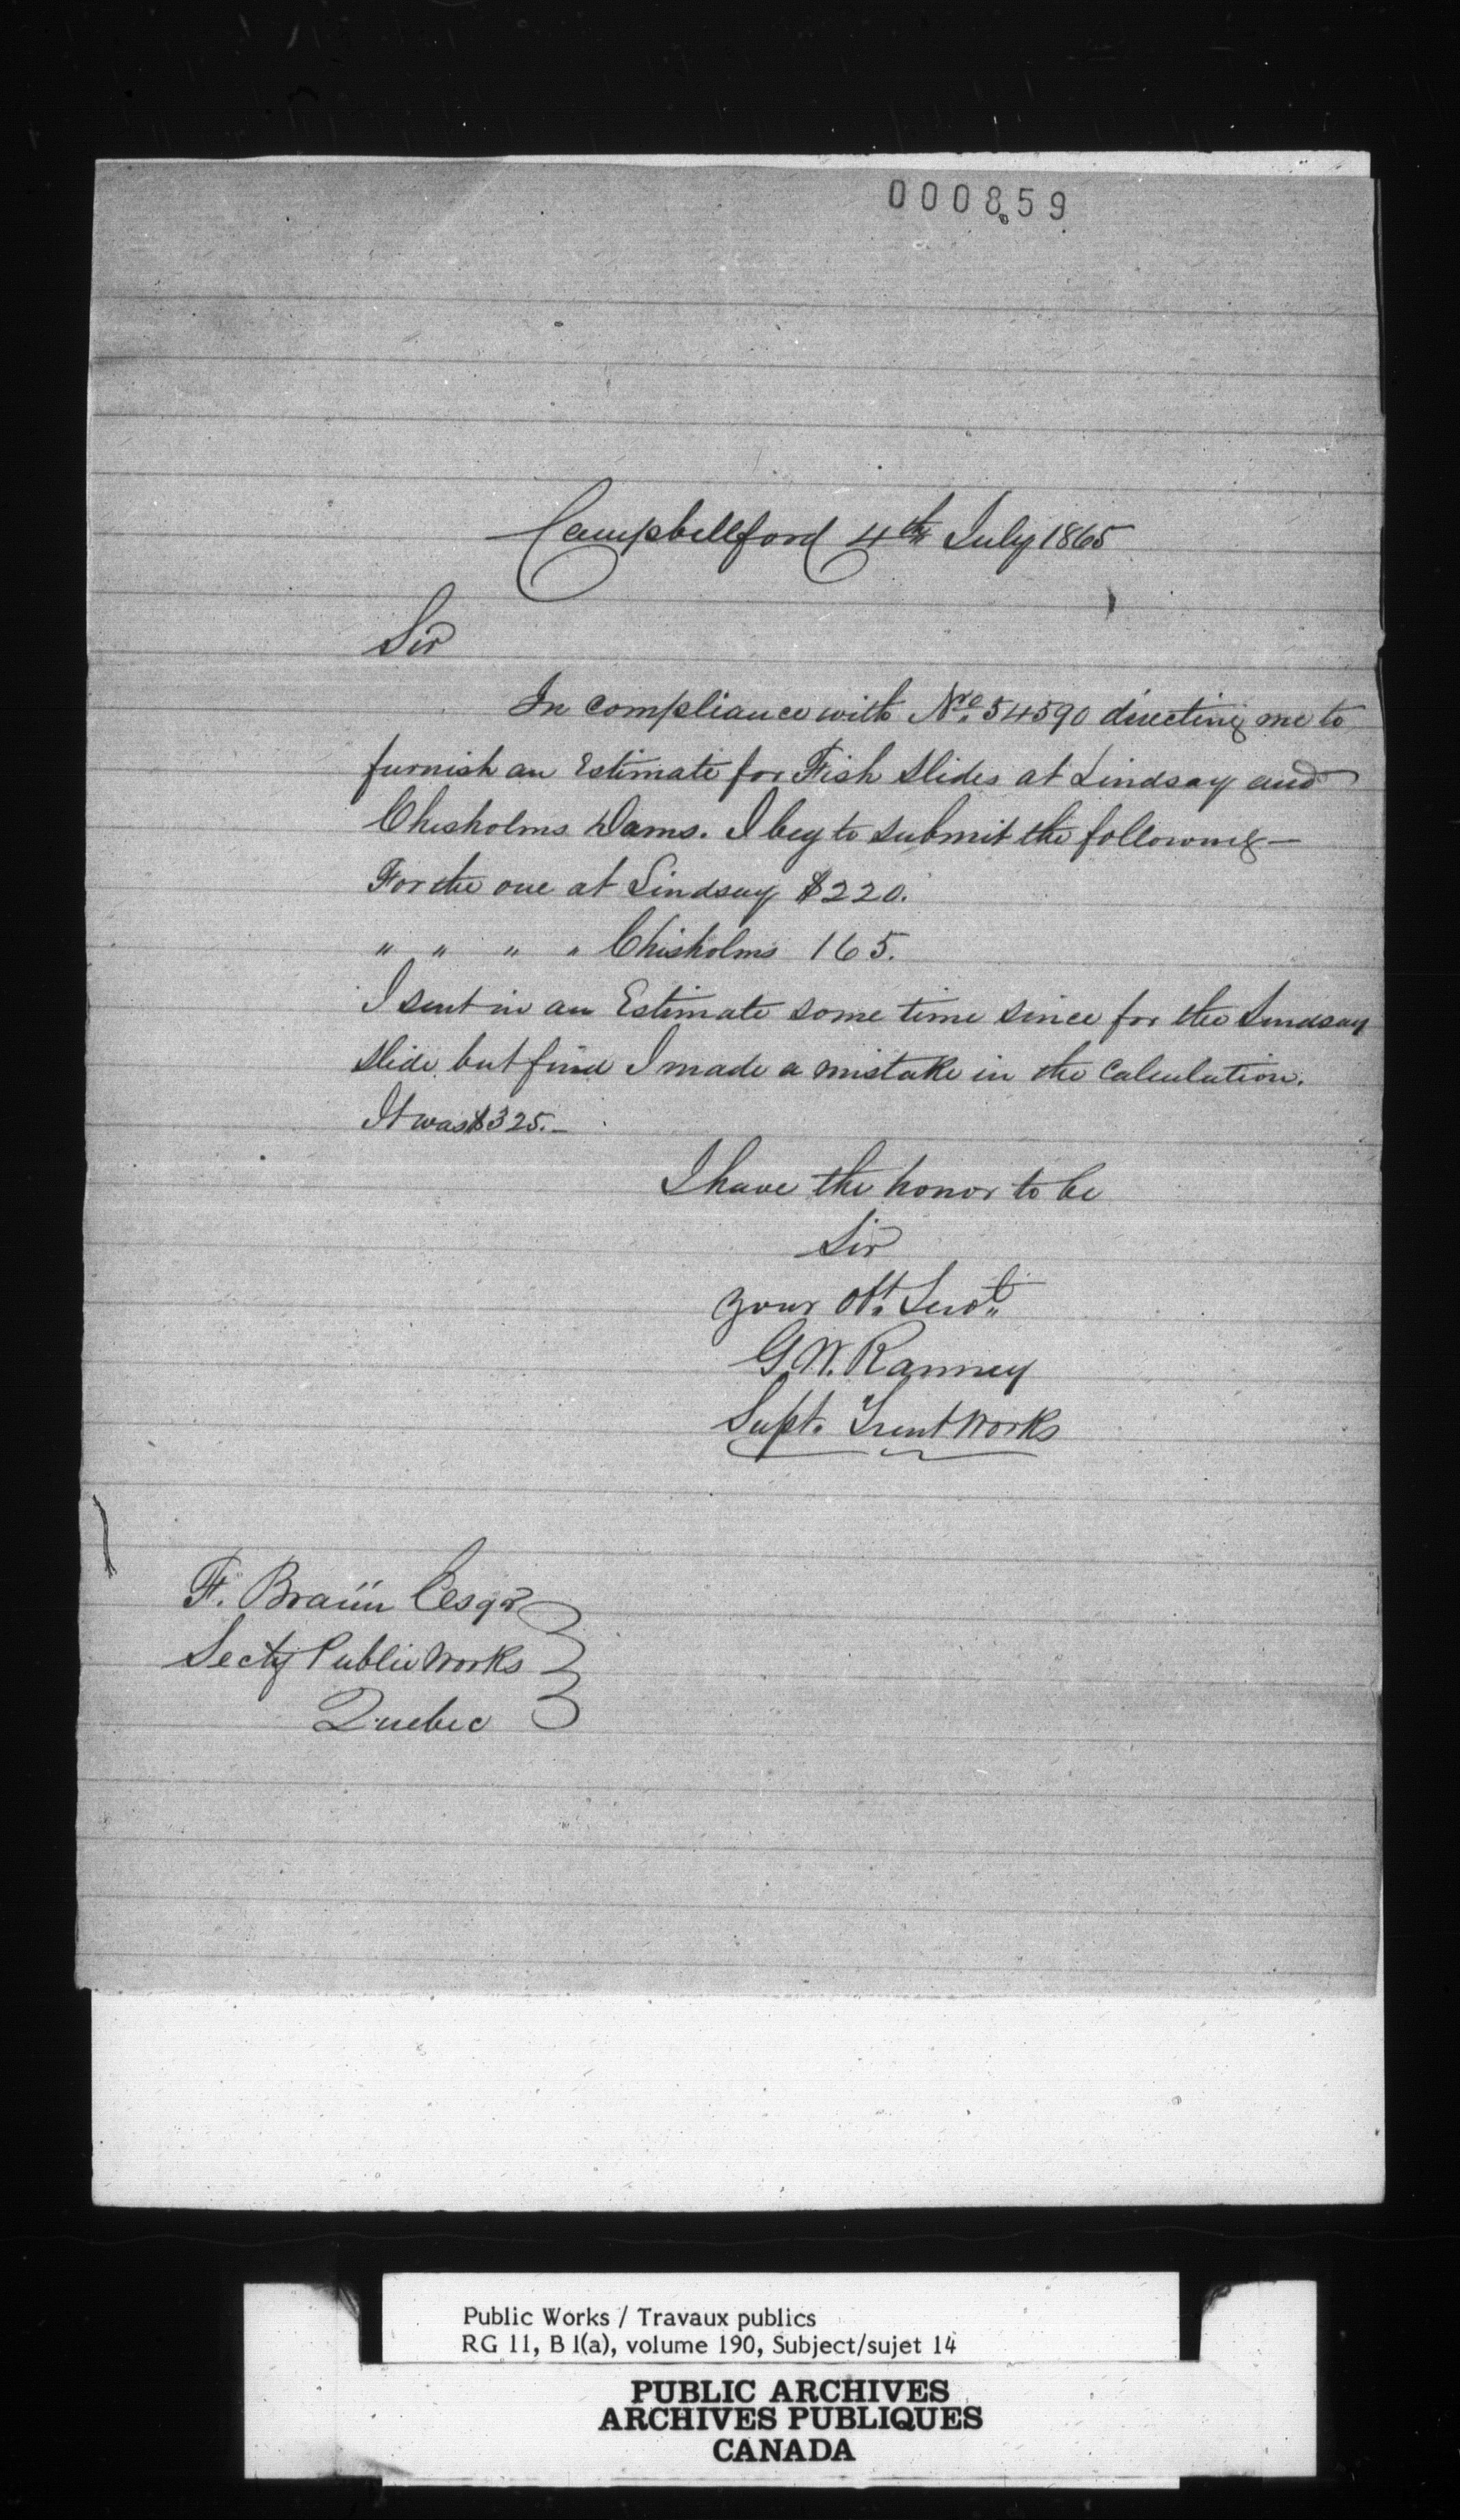 000859
Campbellford 4th July 1865
Sir
In compliance with Nro. 54590 directing me to
furnish an Estimate for Fish Slides at Lindsay and
Chisholms Dams. I beg to submit the following—
For the one at Lindsay $220.
" " " " Chisholms 165.
I sent in an Estimate some time since for the Lindsay
Slide but find I made a mistake in the Calculation.
It was $325.—
I have the honor to be
Sir
your Obt. Servt.
G. W. Ranney
Supt. Trent Works
F. Braün Esqr
Secty Public Works
Quebec
Public Works / Travaux publics
RG 11, B 1(a), volume 190, Subject/sujet 14
PUBLIC ARCHIVES
ARCHIVES PUBLIQUES
CANADA